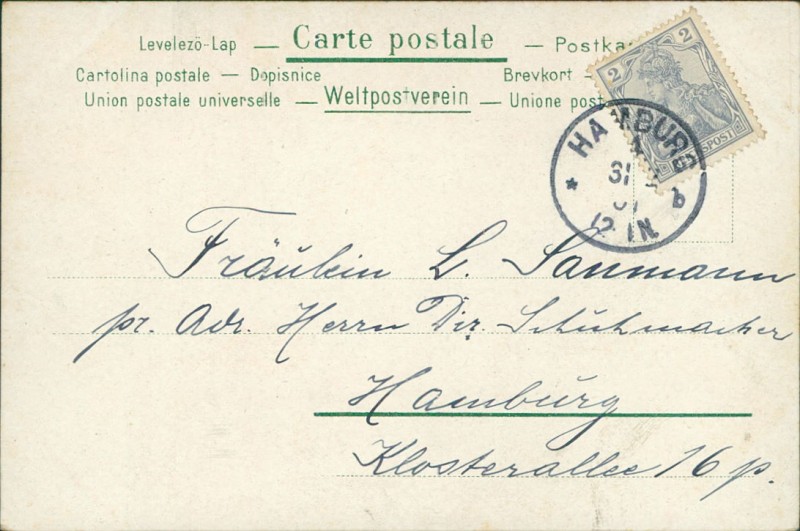 Levelezö-Lap — Carte postale — Postka
Cartolina postale — Dopisnice Brevkort —
Union postale universelle — Weltpostverein — Unione post
2 2
HAMBURG
* 31 b
12-1N
Fräulein L. Saumann
pr. Adr. Herrn Dir. Schuhmacher
Hamburg
Klosterallee 16 p.